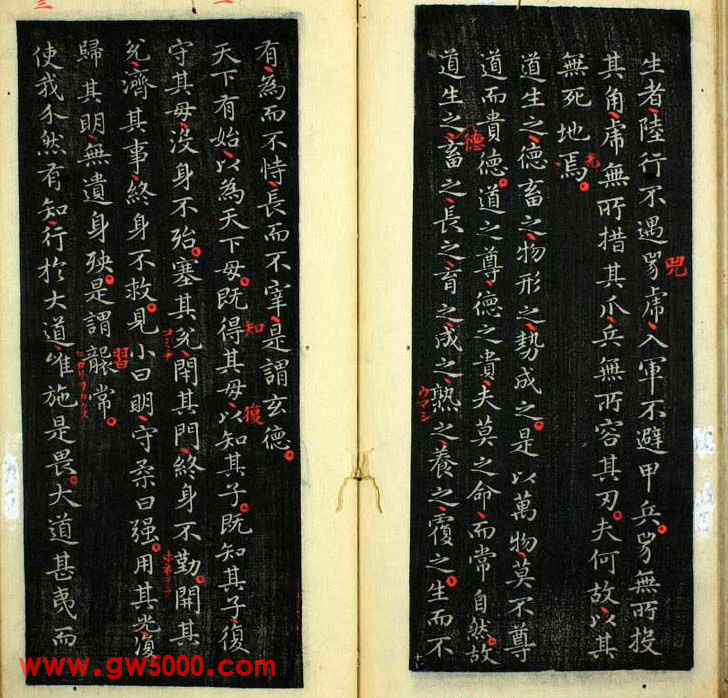 生者陸行不遇兕虎入軍不避甲兵兕無所投
兕
其角虎無所措其爪兵無所容其刃夫何故以其
無死地焉
道生之德畜之物形之勢成之是以萬物莫不尊
道而貴德道之尊德之貴夫莫之命而常自然故
德
道生之畜之長之育之成之熟之養之覆之生而不
ウマシ
有為而不恃長而不宰是謂玄德
天下有始以為天下母既得其母以知其子既知其子復
知
復
守其母没身不殆塞其兌閉其門終身不勤開其
兌濟其事終身不救見小曰明守柔曰强用其光復
歸其明無遺身殃是謂襲常
習
使我介然有知行於大道唯施是畏大道甚夷而
www.gw5000.com